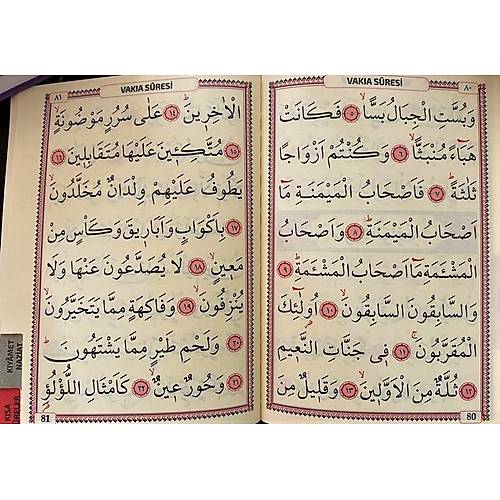 VAKIA SÛRESİ ٨٠
وَبُسَّتِ الْجِبَالُ بَسًّاۙ ﴿٥﴾ فَكَانَتْ
هَبَٓاءً مُنْبَثًّاۙ ﴿٦﴾ وَكُنْتُمْ اَزْوَاجًا
ثَلٰثَةًۜ ﴿٧﴾ فَاَصْحَابُ الْمَيْمَنَةِ مَٓا
اَصْحَابُ الْمَيْمَنَةِۜ ﴿٨﴾ وَاَصْحَابُ
الْمَشْـَٔمَةِ مَٓا اَصْحَابُ الْمَشْـَٔمَةِۜ ﴿٩﴾
وَالسَّابِقُونَ السَّابِقُونَۙ ﴿١٠﴾ اُو۬لٰٓئِكَ
الْمُقَرَّبُونَۚ ﴿١١﴾ فٖي جَنَّاتِ النَّعٖيمِ
﴿١٢﴾ ثُلَّةٌ مِنَ الْاَوَّلٖينَۙ ﴿١٣﴾ وَقَلٖيلٌ مِنَ
80
٨١ VAKIA SÛRESİ
الْاٰخِرٖينَۜ ﴿١٤﴾ عَلٰى سُرُرٍ مَوْضُونَةٍۙ
﴿١٥﴾ مُتَّكِـٖٔينَ عَلَيْهَا مُتَقَابِلٖينَ ﴿١٦﴾
يَطُوفُ عَلَيْهِمْ وِلْدَانٌ مُخَلَّدُونَۙ
﴿١٧﴾ بِاَكْوَابٍ وَاَبَارٖيقَ وَكَأْسٍ مِنْ
مَعٖينٍۙ ﴿١٨﴾ لَا يُصَدَّعُونَ عَنْهَا وَلَا
يُنْزِفُونَۙ ﴿١٩﴾ وَفَاكِهَةٍ مِمَّا يَتَخَيَّرُونَۙ
﴿٢٠﴾ وَلَحْمِ طَيْرٍ مِمَّا يَشْتَهُونَۜ
﴿٢١﴾ وَحُورٌ عٖينٌۙ ﴿٢٢﴾ كَاَمْثَالِ اللُّؤْلُؤِ
81
KIYÂMET
NAZİAT
KISA